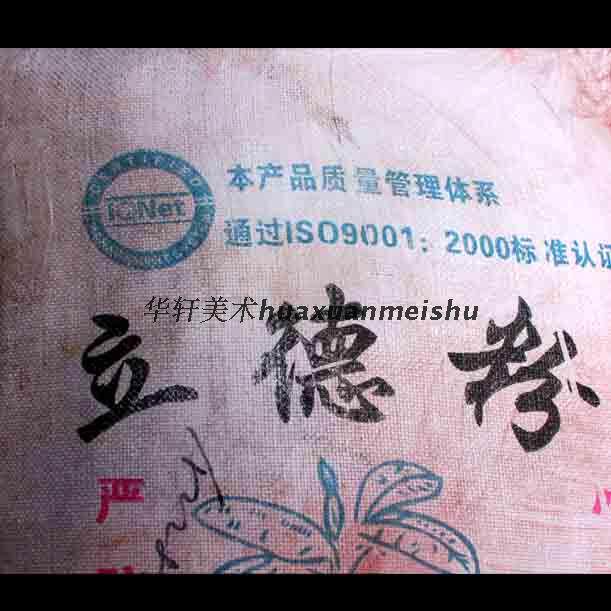 IQNet
本产品质量管理体系
通过ISO9001：2000标准认证
华轩美术huaxuanmeishu
立德粉
严